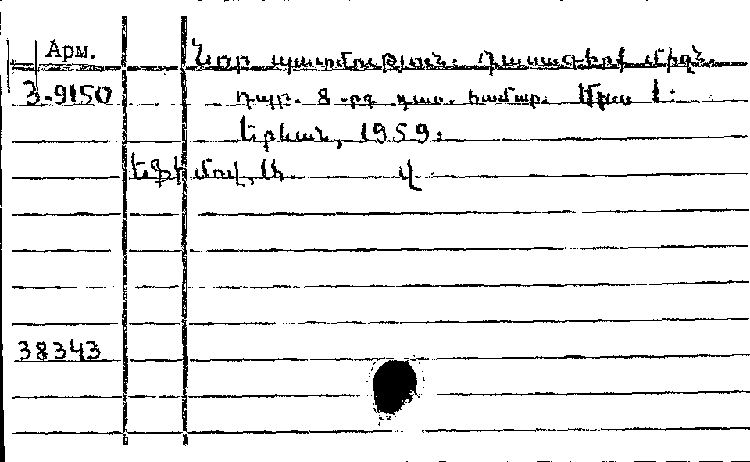 Арм.
Նոր պատմություն. Դասագիրք միջն.
3-9150
դպր. 8-րդ դաս. համար. Մաս 1:
Երևան, 1959:
Եֆիմով, Ա. վ
38343